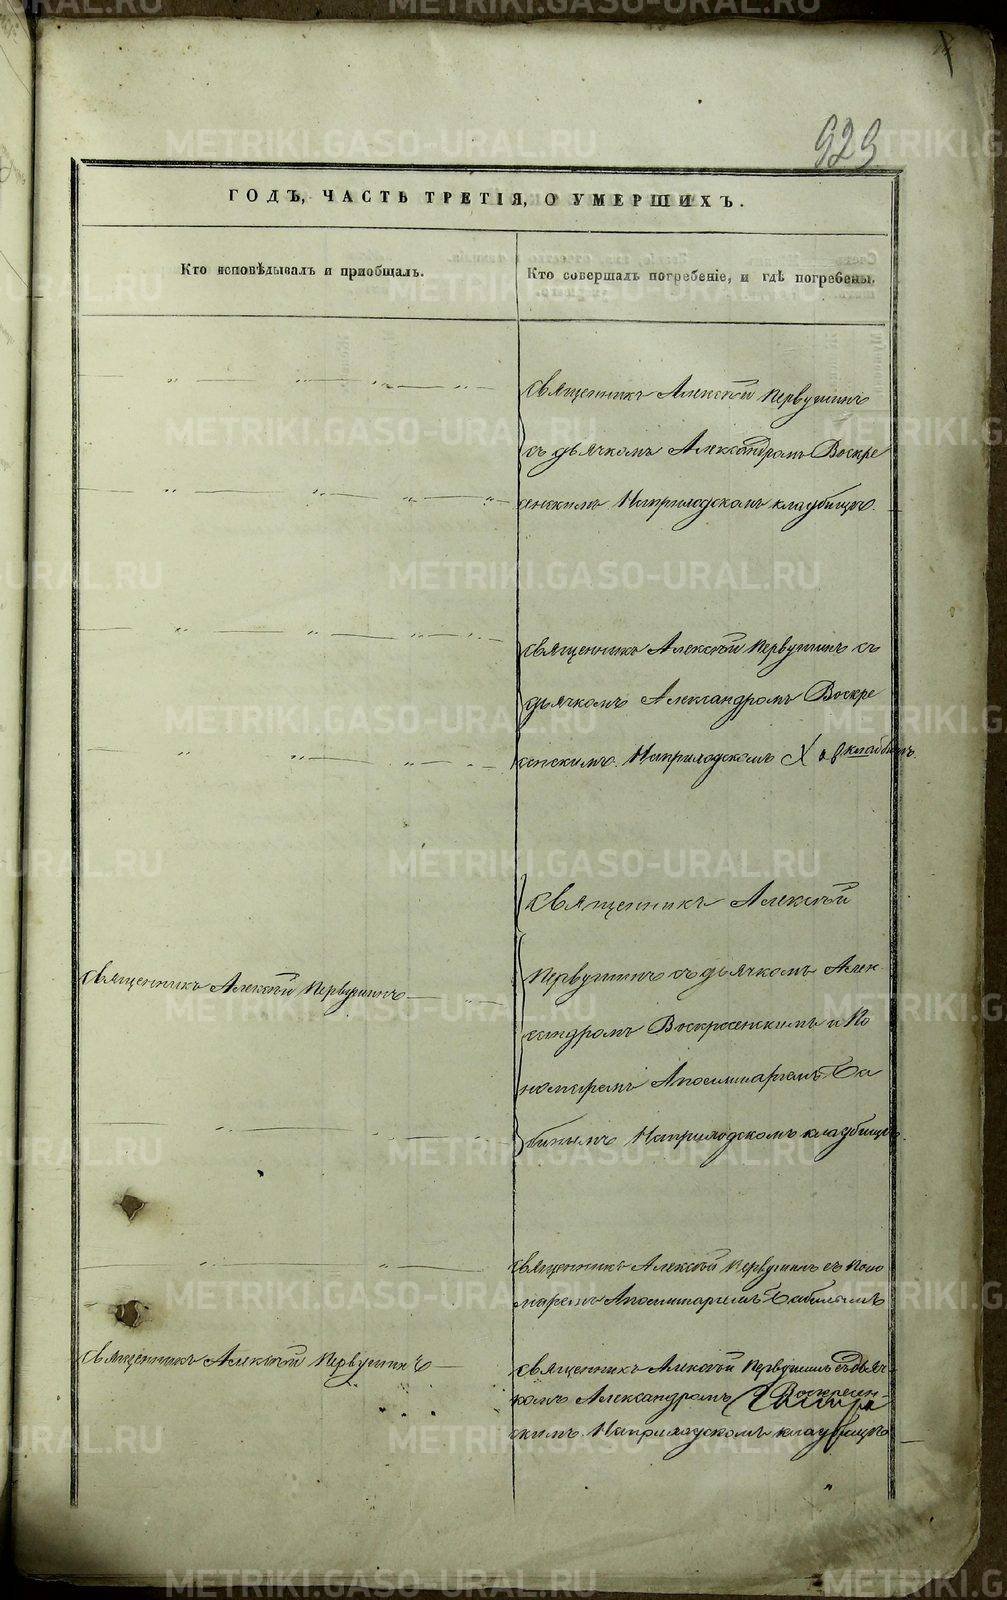 929
ГОДЪ, ЧАСТЬ ТРЕТІЯ, О УМЕРШИХЪ.
Кто исповѣдывалъ и приобщалъ.
Кто совершалъ погребеніе, и гдѣ погребены.
Священникъ Алексѣй Первушинъ
съ дьячкомъ Александромъ Воскре
сенскимъ Наприходскомъ кладбищѣ.
Священникъ Алексѣй Первушинъ съ
дьячкомъ Александромъ Воскре
сенскимъ. Наприходскомъ кладбищѣ.
Священникъ Алексѣй
Первушинъ съ дьячкомъ Алек
сандромъ Воскресенскимъ и По
номаремъ Аполинаріемъ Ба
бинымъ Наприходскомъ кладбищѣ.
Священникъ Алексѣй Первушинъ
Священникъ Алексѣй Первушинъ съ Поно
маремъ Аполинаріемъ Бабинымъ
Священникъ Алексѣй Первушинъ
Священникъ Алексѣй Первушинъ съ дьяч-
комъ Александромъ Воскресен-
скимъ. Наприходскомъ кладбищѣ
METRIKI.GASO-URAL.RU